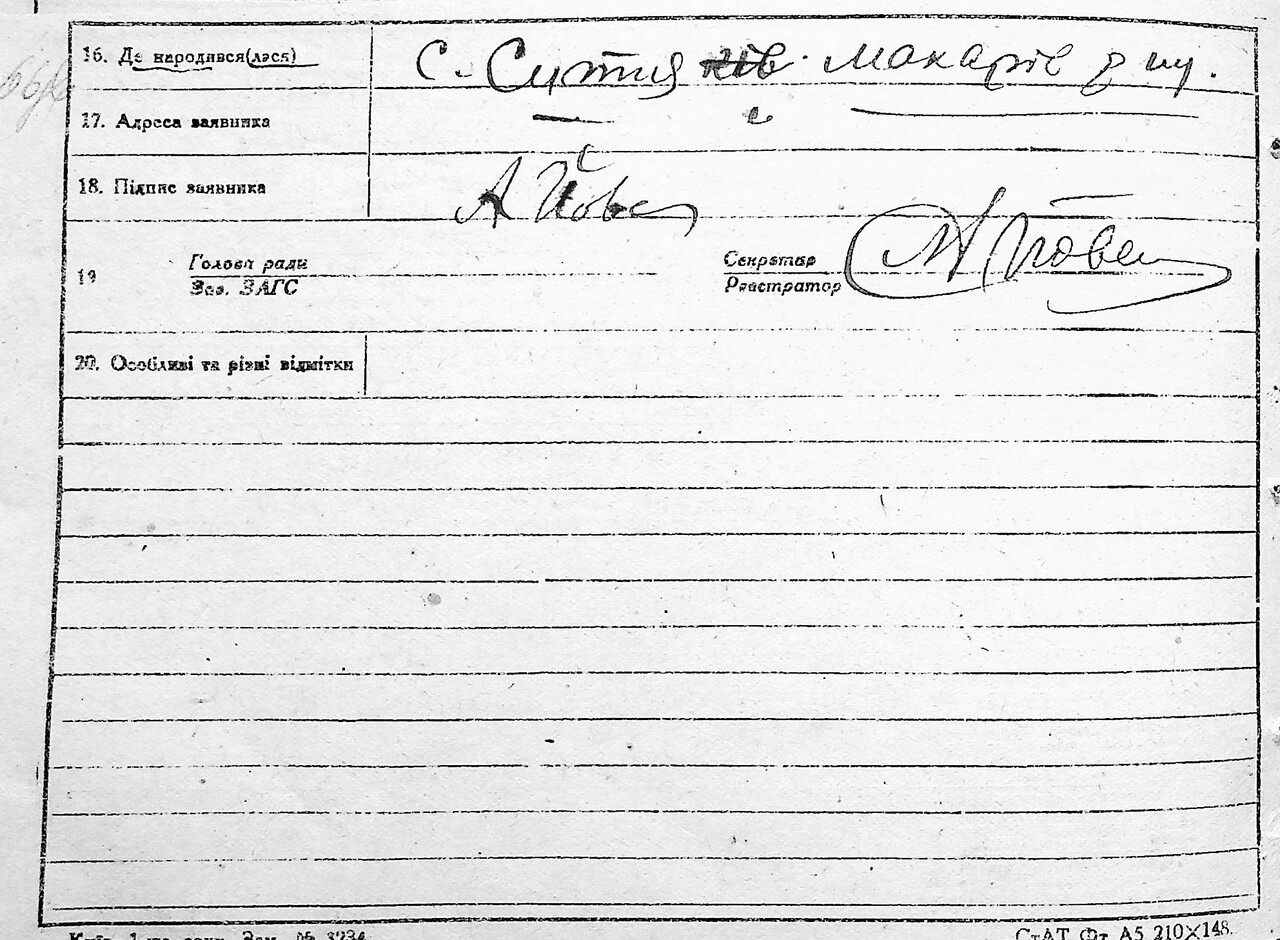 16. Де народився(лася) с. Ситня Макарів р ну.
17. Адреса заявника — „ —
18. Підпис заявника А Йовен
19 Голова ради
Зав. ЗАГС
Секретар
Реєстратор
20. Особливі та різні відмітки
Зам. № 3234
СтАТ Фт А5 210×148.